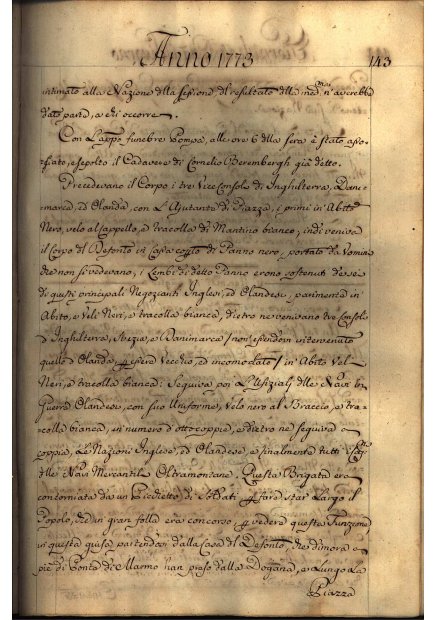 Anno 1773
143
intimato alla Nazione della sessione del resultato della med.ma n'averebbe
dato parte, a chi occorre.
Con l'appo funebre Pompa, alle ore 6 della sera è stato asso-
ciato, e sepolto il Cadavere di Cornelio Berembergh già detto.
Precedevano il Corpo i tre Vice Consoli di Inghilterra, Dani-
marca, ed Olanda, con L'Ajutante di Piazza, i primi in Abito
Nero, velo al Cappello, e tracolla di Mantino bianco, indi veniva
il Corpo del Defonto in Cassa coperto di Panno nero, portato da Uomini
che non si vedevano, i Lembi di detto Panno erono sostenuti da sei
di questi principali Negozianti Inglesi, ed Olandesi, parimente in
Abito, e Veli Neri, e tracolla bianca, dietro ne venivano tre Consoli
d'Inghilterra, Svezia, e Danimarca / non essendovi intervenuto
quello d'Olanda, p essere Vecchio, ed incomodato / in Abito Veli
Neri, e tracolla bianca: Seguiva poi L'Ufizialità delle Navi da
Guerra Olandesi, con suo Uniforme, velo nero al Braccio, e tra-
colla bianca, in numero d'otto coppie, e dietro ne seguiva a
coppia, Le Nazioni Inglese, ed Olandese, e finalmente tutti i Cap.ni
delle Navi Mercantili Oltramontane. Questa Brigata era
contorniata da un Picchetto di Soldati p fare star Largo il
Popolo, che in gran folla era concorso p vedere questa Funzione,
in questa guisa partendosi dalla Casa del Defonto, che dimora a
piè di Ponte di Marmo han preso dalla Dogana, e Lungo La
Piazza